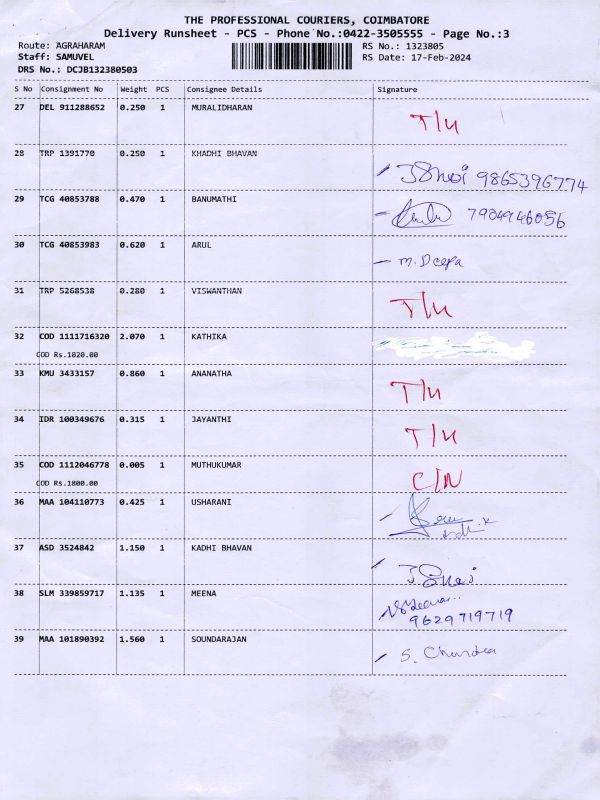 THE PROFESSIONAL COURIERS, COIMBATORE
Delivery Runsheet - PCS - Phone No.:0422-3505555 - Page No.:3
Route: AGRAHARAM RS No.: 1323805
Staff: SAMUVEL RS Date: 17-Feb-2024
DRS No.: DCJB132380503
S No Consignment No Weight PCS Consignee Details Signature
27 DEL 911288652 0.250 1 MURALIDHARAN T/U
28 TRP 1391770 0.250 1 KHADHI BHAVAN 9865396774
29 TCG 40853788 0.470 1 BANUMATHI 7904946056
30 TCG 40853983 0.620 1 ARUL M. Deepa
31 TRP 5268538 0.280 1 VISWANTHAN T/U
32 COD 1111716320 2.070 1 KATHIKA
COD Rs.1020.00
33 KMU 3433157 0.860 1 ANANATHA T/U
34 IDR 100349676 0.315 1 JAYANTHI T/U
35 COD 1112046778 0.005 1 MUTHUKUMAR C/N
COD Rs.1800.00
36 MAA 104110773 0.425 1 USHARANI
37 ASD 3524842 1.150 1 KADHI BHAVAN
38 SLM 339859717 1.135 1 MEENA
9629719719
39 MAA 101890392 1.560 1 SOUNDARAJAN S. Chandra